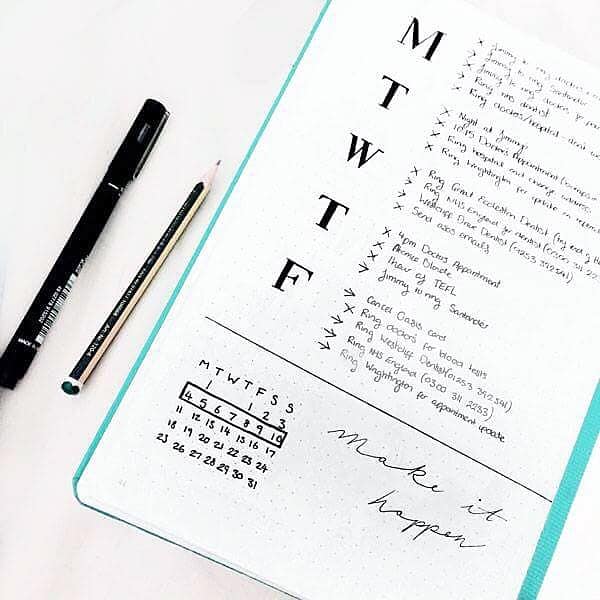 M
Jimmy to ring doctors
Jimmy to ring Santander
Jimmy to ring doctors for
Ring NHS dentist
Ring doctors/hospital - don't
T
Night at Jimmy's
Doctors Appointment
Ring hospital and change address
Ring Wrightington for update on
W
Ring Great Eccleston Dentist (try end of
Ring NHS England for dentist (0300 311 22
Westcliff Drive Dentist (01253 392541)
Send ASOS emails
T
4pm Doctors Appointment
1 hour of TEFL
Jimmy to ring Santander
F
Cancel Oasis card
Ring doctors for blood tests
Ring Westcliff Dentist (01253 392541)
Ring NHS England (0300 311 2233)
Ring Wrightington for appointment update
M T W T F S S
1 1 2 3
4 5 6 7 8 9 10
11 12 13 14 15 16 17
18 19 20 21 22 23 24
25 26 27 28 29 30 31
Make it
happen